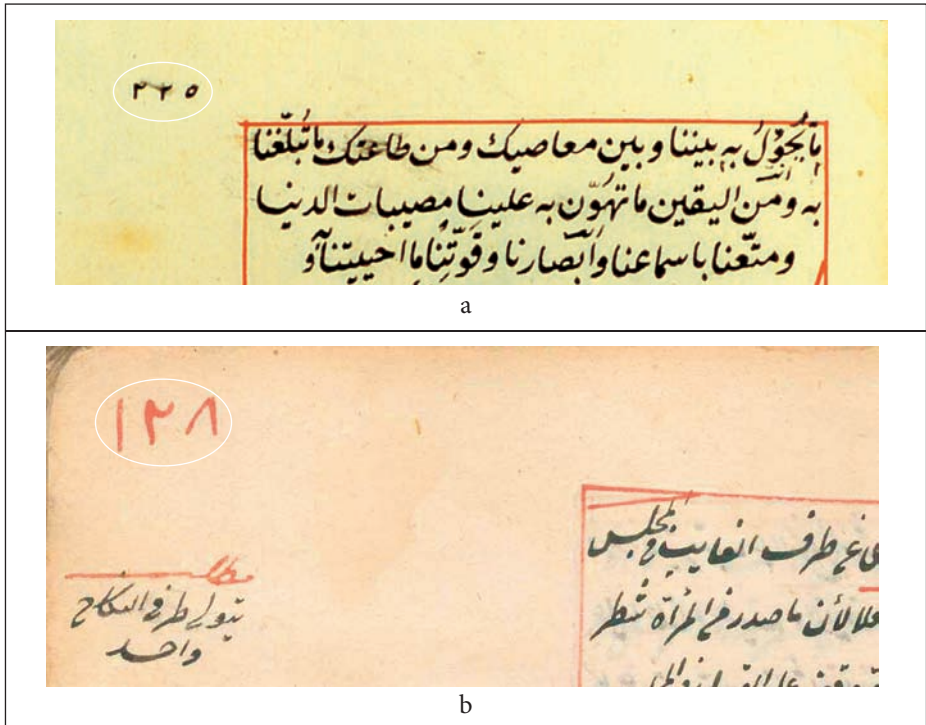 ٢٢٥
ما يَحُوْلُ به بيننا وبين معاصيك ومن طاعتك ما تُبلّغنا
به ومن اليقين ما تهَوّن به علينا مصيبات الدنيا
ومتّعنا باسماعنا وابصارنا وقوّتنا ما احييتنا و
a
١٢٨
مطلب
يتولى طرفي النكاح
واحد
طرف الغايب في المجلس
لأن ما صدر من المرأة شطر
b